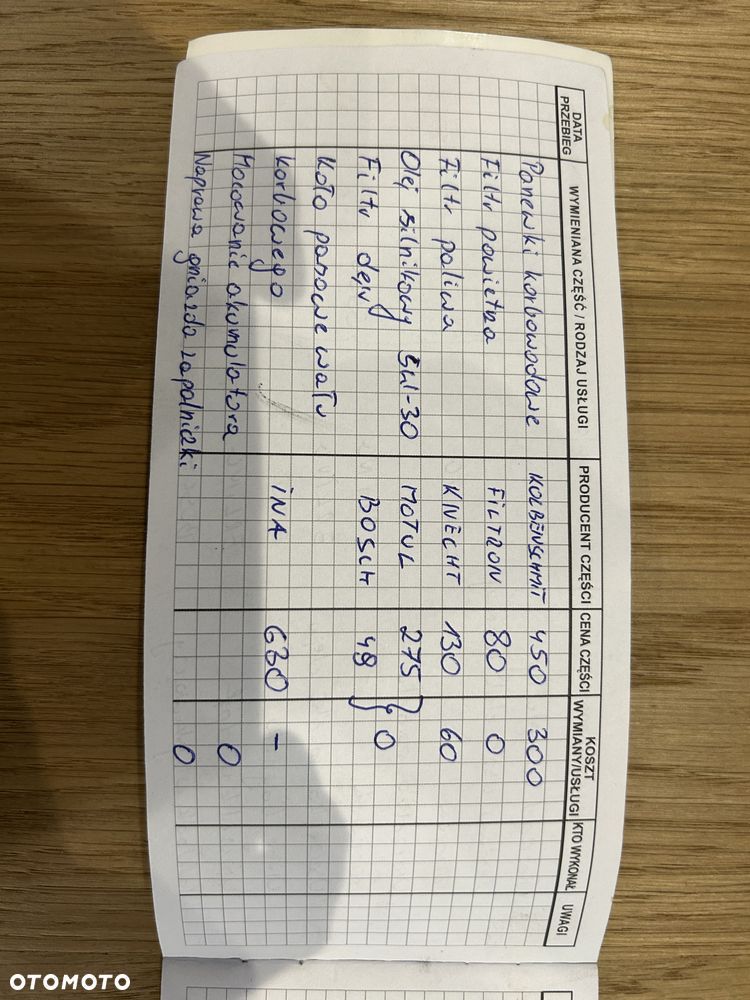 DATA PRZEBIEG WYMIENIANA CZĘŚĆ / RODZAJ USŁUGI PRODUCENT CZĘŚCI CENA CZĘŚCI KOSZT WYMIANY/USŁUGI KTO WYKONAŁ UWAGI
Panewki korbowodowe KOLBENSCHMIT 450 300
Filtr powietrza FILTRON 80 0
Filtr paliwa KNECHT 130 60
Olej silnikowy 5W-30 MOTUL 275 } 0
Filtr oleju BOSCH 48
Koło pasowe wału
korbowego INA 630 -
Mocowanie akumulatora 0
Naprawa gniazda zapalniczki 0
OTOMOTO